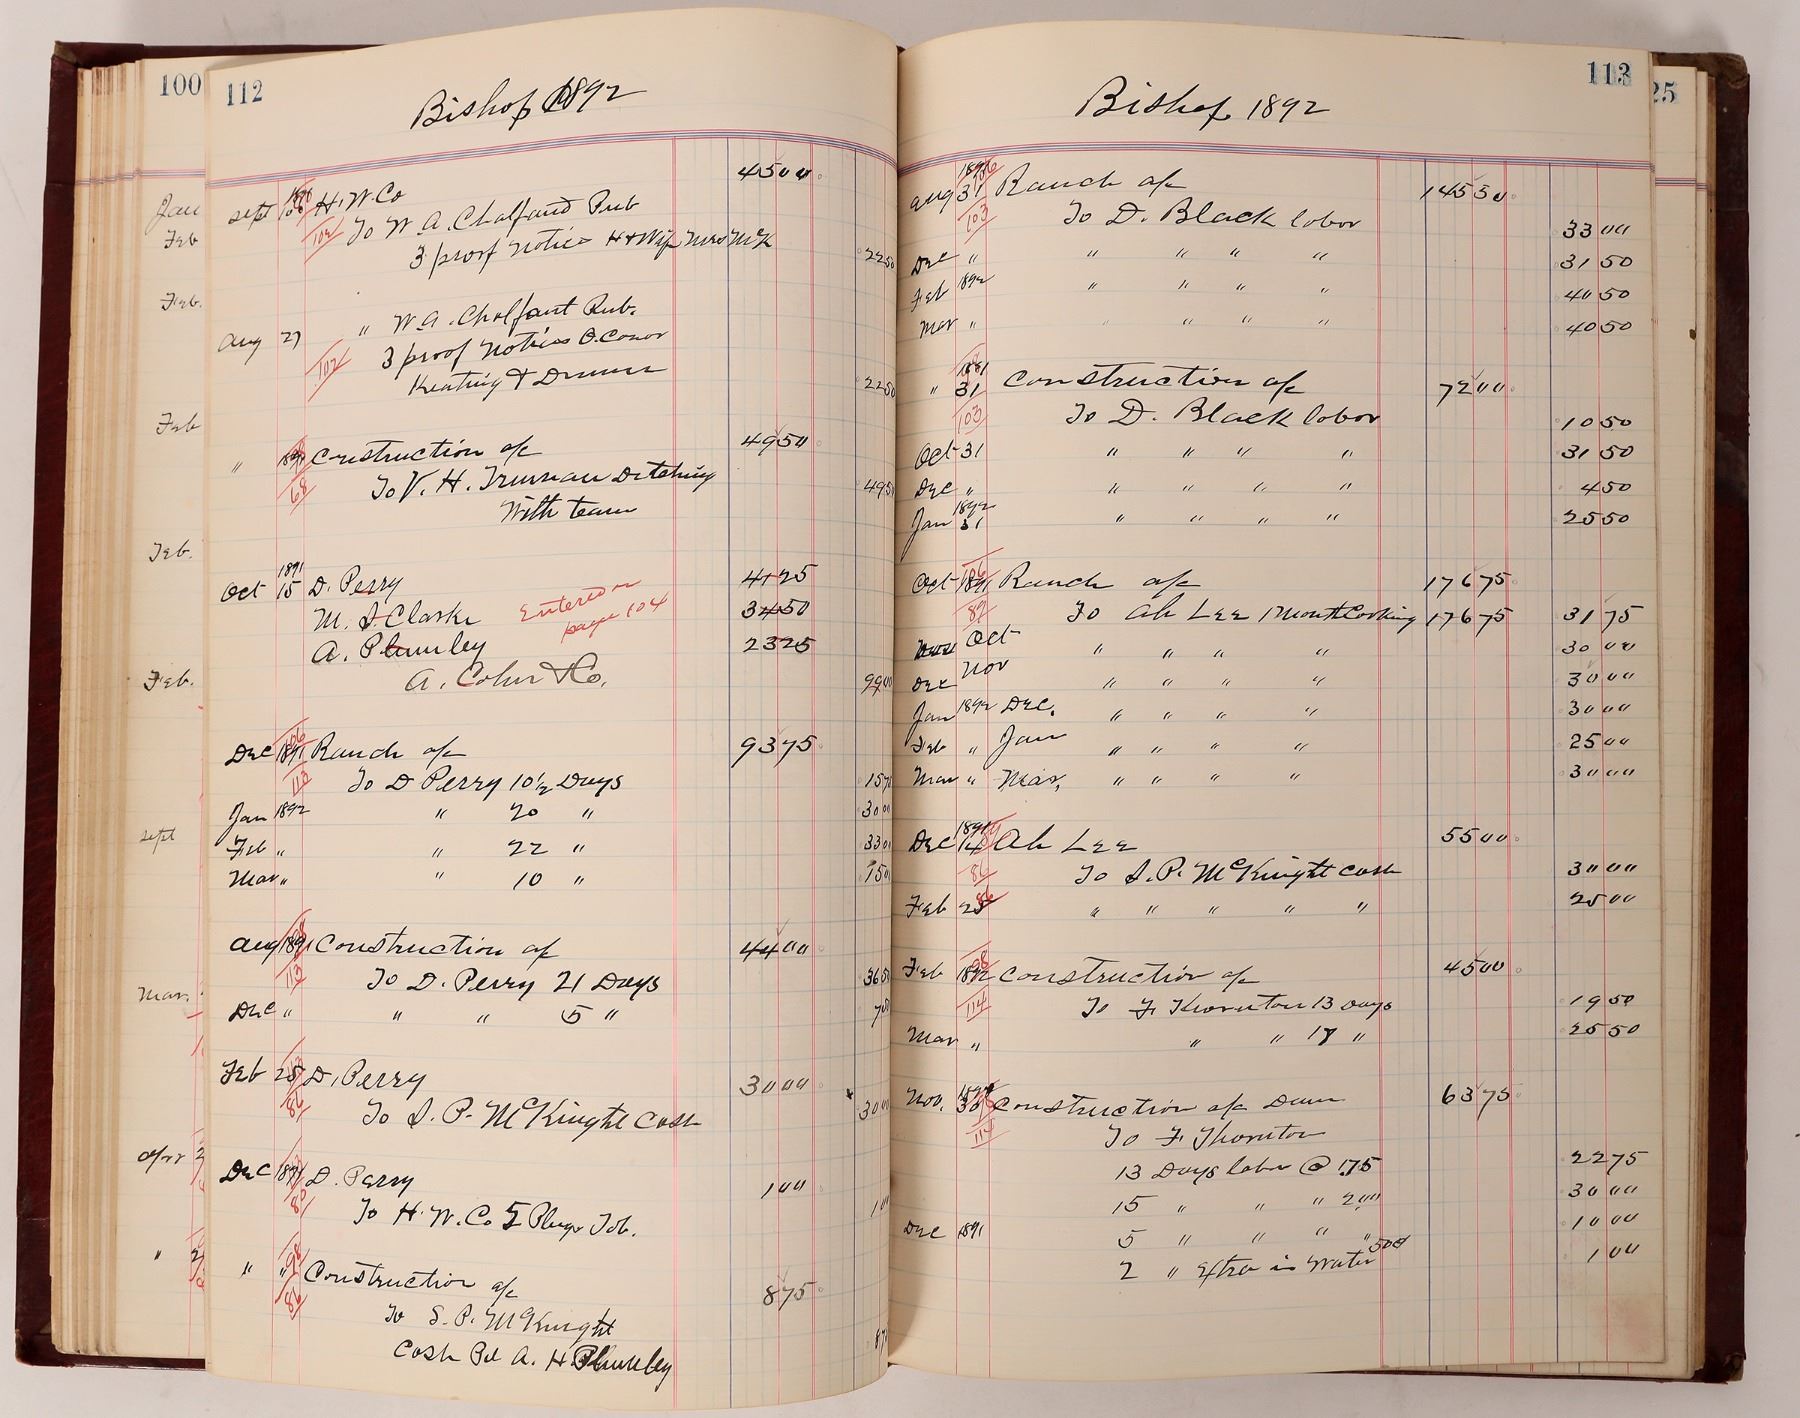 100
Jan
Feb
Feb.
Feb
Feb.
Feb.
sept
Mar.
Apr 2
" 2
112
Bishop 1892
4500
Sept 1891 106 H. W. Co
102 To W. A. Chalfand Pub
3 proof Notices H+Wife Mrs McK 2250
Aug 27 " W. A. Chalfant Pub.
102 3 proof Notices O.Conor
Keating & 2250
" 1891 98 Construction a/c 4950
68 To V. H. Truman Ditching 4950
With team
1891
Oct 15 D. Perry 4125
M. J. Clarke Entered on 3450
A. Plumley page 104 2325
A. Cohn & Co. 9900
Dec 1891 106 Ranch a/c 9375
113 To D Perry 10½ Days 1575
Jan 1892 " 20 " 3000
Feb " " 22 " 3300
Mar " " 10 " 150
Aug 1891 98 Construction a/c 4400
113 To D. Perry 21 Days 3650
Dec " " " 5 " 750
Feb 25 D. Perry 3000
86 To S. P. McKinght Cash 3000
Dec 1891 D. Perry 100
80 To H. W. Co 5 Plugs Tob. 100
" " 98 Construction a/c 875
86 To S. P. McKinght
Cash Pd A. H. Plumley 87
113
25
Bishop 1892
1891 106
Aug 31 Ranch a/c 14550
103 To D. Black labor 3300
Dec " " " " " 3150
Feb 1892 " " " " 4050
Mar " " " " " 4050
1891 98
" 31 Construction a/c 7200
103 To D. Black labor 1050
Oct 31 " " " " 3150
Dec " " " " " 450
Jan 1892 31 " " " " 2550
Oct 1891 106 Ranch a/c 17675
89 To Ah Lee 1 Month Cooking 17675 3175
Oct " " " " 3000
Dec Nov " " " " 3000
Jan 1892 Dec. " " " " 3000
Feb " Jan " " " " 2500
Mar " Mar, " " " " 3000
1891 89
Dec 14 Ah Lee 5500
86 To S. P. McKinght cash 3000
Feb 25 86 " " " " " 2500
Feb 1892 98 Construction a/c 4500
114 To F. Thornton 13 Days 1950
Mar " " " 17 " 2550
Nov. 30 Construction a/c Dam 6375
114 To F. Thornton
13 Days labor @ 175 2275
15 " " " 200 3000
Dec 1891 5 " " " " 1000
2 " Extra in Water 50¢ 100